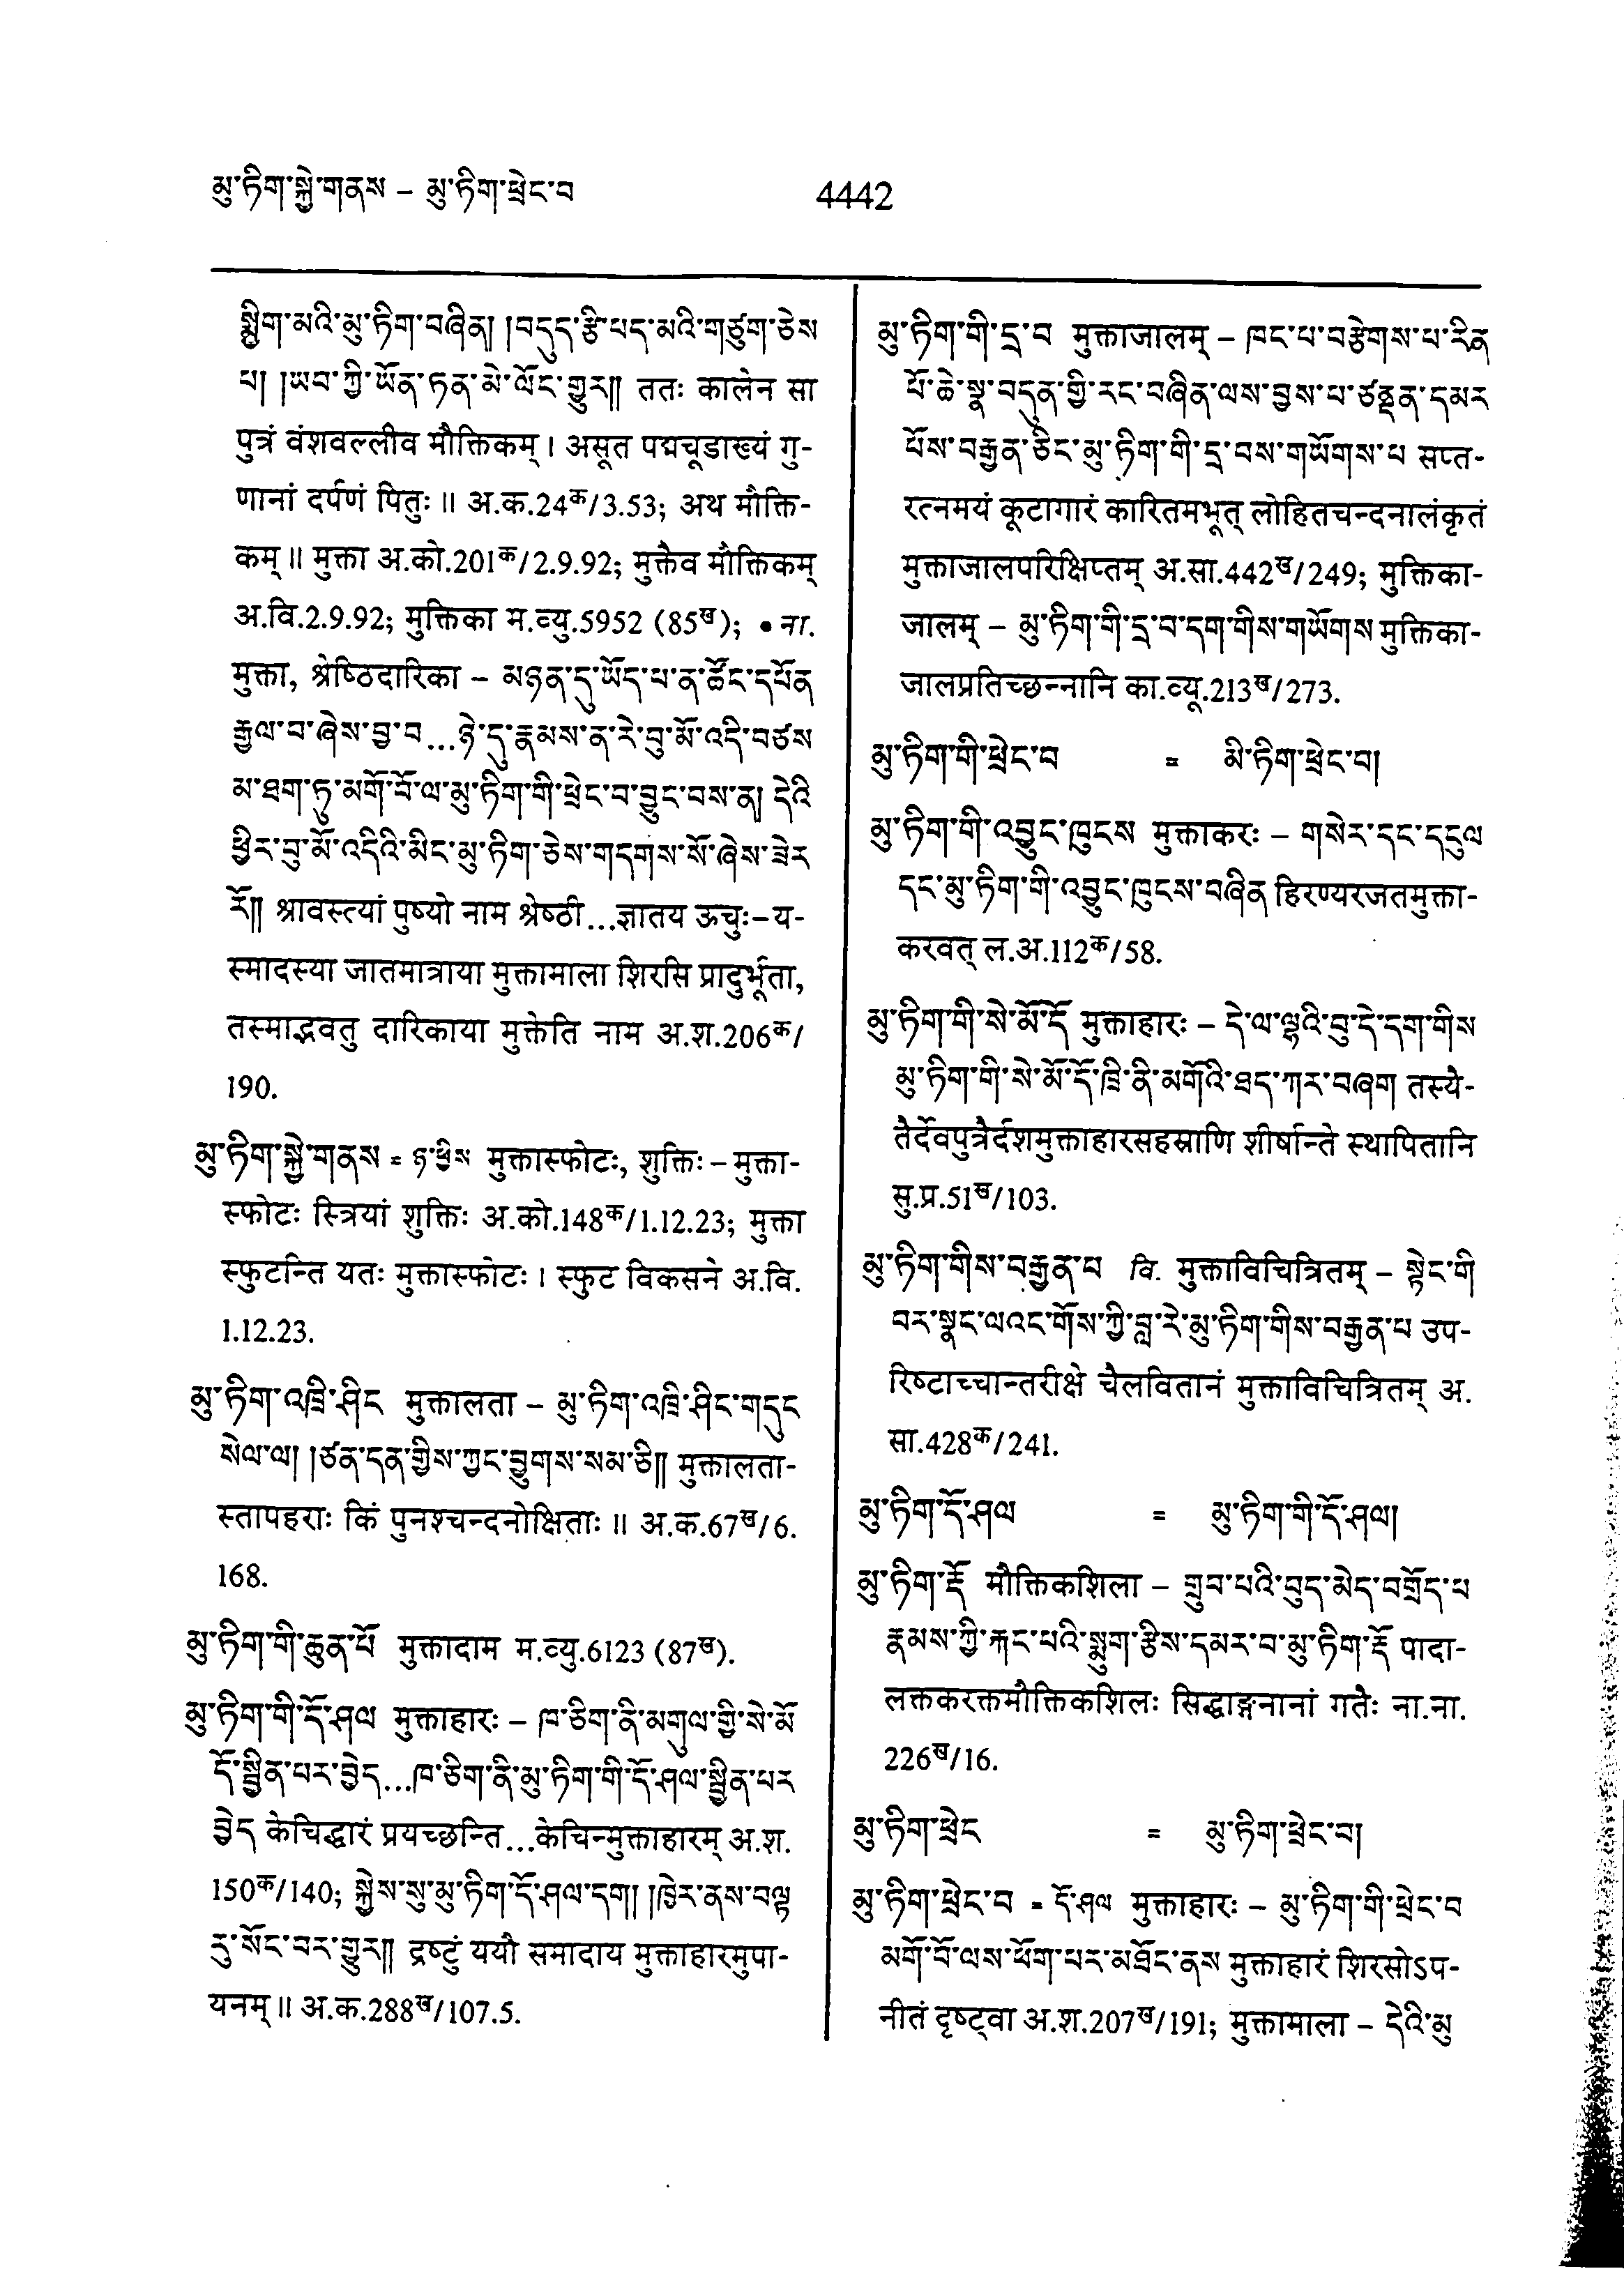 མུ་ཏིག་སྐྱེ་གནས – མུ་ཏིག་ཕྲེང་བ
4442
སྨྱིག་མའི་མུ་ཏིག་བཞིན། །བདུད་རྩི་པད་མའི་གཙུག་ཅེས
པ། །ཡབ་ཀྱི་ཡོན་ཏན་མེ་ལོང་གྱུར།། ततः कालेन सा
पुत्रं वंशवल्लीव मौक्तिकम् । असूत पद्मचूडाख्यं गु-
णानां दर्पणं पितुः ॥ अ.क.24क/3.53; अथ मौक्ति-
कम् ॥ मुक्ता अ.को.201क/2.9.92; मुक्तैव मौक्तिकम्
अ.वि.2.9.92; मुक्तिका म.व्यु.5952 (85ख); • ना.
मुक्ता, श्रेष्ठिदारिका – མཉན་དུ་ཡོད་པ་ན་ཚོང་དཔོན
རྒྱལ་བ་ཞེས་བྱ་བ...ཉེ་དུ་རྣམས་ན་རེ་བུ་མོ་འདི་བཙས
མ་ཐག་ཏུ་མགོ་བོ་ལ་མུ་ཏིག་གི་ཕྲེང་བ་བྱུང་བས་ན། དེའི
ཕྱིར་བུ་མོ་འདིའི་མིང་མུ་ཏིག་ཅེས་གདགས་སོ་ཞེས་ཟེར
རོ།། श्रावस्त्यां पुष्यो नाम श्रेष्ठी...ज्ञातय ऊचुः–य-
स्मादस्या जातमात्राया मुक्तामाला शिरसि प्रादुर्भूता,
तस्माद्भवतु दारिकाया मुक्तेति नाम अ.श.206क/
190.
མུ་ཏིག་སྐྱེ་གནས = ཉ་ཕྱིས मुक्तास्फोटः, शुक्तिः – मुक्ता-
स्फोटः स्त्रियां शुक्तिः अ.को.148क/1.12.23; मुक्ता
स्फुटन्ति यतः मुक्तास्फोटः । स्फुट विकसने अ.वि.
1.12.23.
མུ་ཏིག་འཁྲི་ཤིང मुक्तालता – མུ་ཏིག་འཁྲི་ཤིང་གདུང
སེལ་ལ། །ཙན་དན་གྱིས་ཀྱང་བྱུགས་སམ་ཅི།། मुक्तालता-
स्तापहराः किं पुनश्चन्दनोक्षिताः ॥ अ.क.67ख/6.
168.
མུ་ཏིག་གི་ཆུན་པོ मुक्तादाम म.व्यु.6123 (87ख).
མུ་ཏིག་གི་དོ་ཤལ मुक्ताहारः – ཁ་ཅིག་ནི་མགུལ་གྱི་སེ་མོ
དོ་སྦྱིན་པར་བྱེད...ཁ་ཅིག་ནི་མུ་ཏིག་གི་དོ་ཤལ་སྦྱིན་པར
བྱེད केचिद्धारं प्रयच्छन्ति...केचिन्मुक्ताहारम् अ.श.
150क/140; སྐྱེས་སུ་མུ་ཏིག་དོ་ཤལ་དག། །ཁྱེར་ནས་བལྟ
རུ་སོང་བར་གྱུར།། द्रष्टुं ययौ समादाय मुक्ताहारमुपा-
यनम् ॥ अ.क.288ख/107.5.
མུ་ཏིག་གི་དྲ་བ मुक्ताजालम् – ཁང་པ་བརྩེགས་པ་རིན
པོ་ཆེ་སྣ་བདུན་གྱི་རང་བཞིན་ལས་བྱས་པ་ཙནྡན་དམར
པོས་བརྒྱན་ཅིང་མུ་ཏིག་གི་དྲ་བས་གཡོགས་པ सप्त-
रत्नमयं कूटागारं कारितमभूत् लोहितचन्दनालंकृतं
मुक्ताजालपरिक्षिप्तम् अ.सा.442ख/249; मुक्तिका-
जालम् – མུ་ཏིག་གི་དྲ་བ་དག་གིས་གཡོགས मुक्तिका-
जालप्रतिच्छन्नानि का.व्यू.213ख/273.
མུ་ཏིག་གི་ཕྲེང་བ = མི་ཏིག་ཕྲེང་བ།
མུ་ཏིག་གི་འབྱུང་ཁུངས मुक्ताकरः – གསེར་དང་དངུལ
དང་མུ་ཏིག་གི་འབྱུང་ཁུངས་བཞིན हिरण्यरजतमुक्ता-
करवत् ल.अ.112क/58.
མུ་ཏིག་གི་སེ་མོ་དོ मुक्ताहारः – དེ་ལ་ལྷའི་བུ་དེ་དག་གིས
མུ་ཏིག་གི་སེ་མོ་དོ་ཁྲི་ནི་མགོའི་ཐད་ཀར་བཞག तस्यै-
तैर्देवपुत्रैर्दशमुक्ताहारसहस्राणि शीर्षान्ते स्थापितानि
सु.प्र.51ख/103.
མུ་ཏིག་གིས་བརྒྱན་པ वि. मुक्ताविचित्रितम् – སྟེང་གི
བར་སྣང་ལའང་གོས་ཀྱི་བླ་རེ་མུ་ཏིག་གིས་བརྒྱན་པ उप-
रिष्टाच्चान्तरीक्षे चैलवितानं मुक्ताविचित्रितम् अ.
सा.428क/241.
མུ་ཏིག་དོ་ཤལ = མུ་ཏིག་གི་དོ་ཤལ།
མུ་ཏིག་རྡོ मौक्तिकशिला – གྲུབ་པའི་བུད་མེད་བགྲོད་པ
རྣམས་ཀྱི་རྐང་པའི་སྨུག་རྩིས་དམར་བ་མུ་ཏིག་རྡོ पादा-
लक्तकरक्तमौक्तिकशिलः सिद्धाङ्गनानां गतैः ना.ना.
226ख/16.
མུ་ཏིག་ཕྲེང = མུ་ཏིག་ཕྲེང་བ།
མུ་ཏིག་ཕྲེང་བ = དོ་ཤལ मुक्ताहारः – མུ་ཏིག་གི་ཕྲེང་བ
མགོ་བོ་ལས་ཕོག་པར་མཐོང་ནས मुक्ताहारं शिरसोऽप-
नीतं दृष्ट्वा अ.श.207ख/191; मुक्तामाला – དེའི་མུ